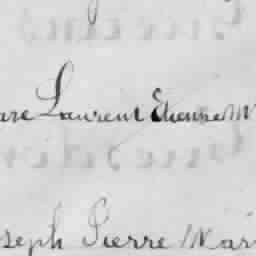 are Laurent Etienne M
seph Pierre Mar